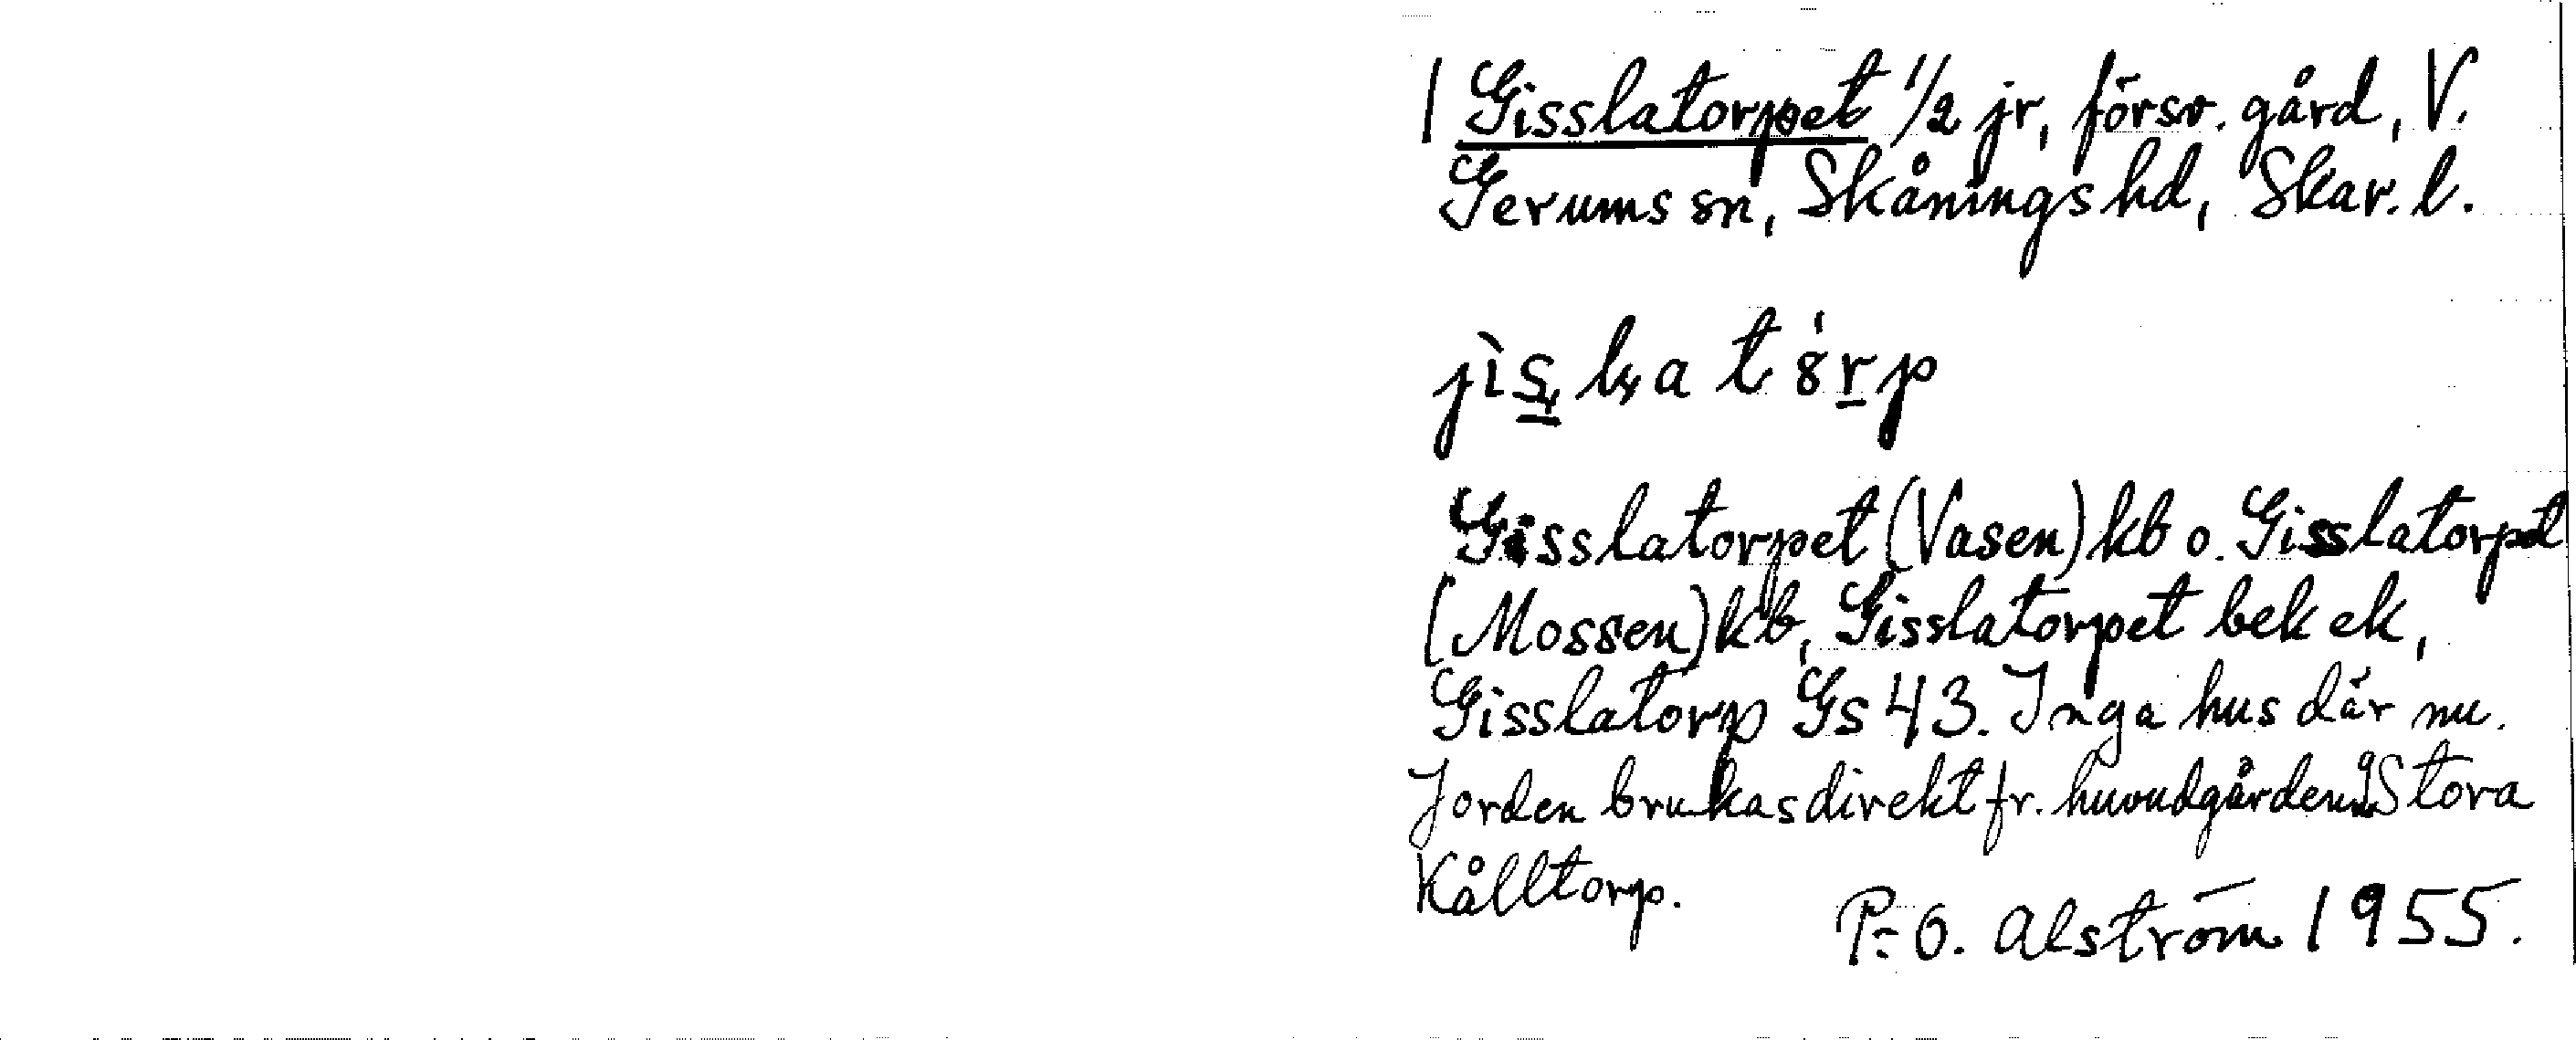 | Gisslatorpet 1/2 jr, försv. gård, V.
Gerums sn, Skånings hd, Skar. l.
jìs̲l̥a tör̲p
Gisslatorpet (Vasen) kb o. Gisslatorpet
(Mossen) kb, Gisslatorpet bek ek,
Gisslatorp Gs 43. Inga hus där nu.
Jorden brukas direkt fr. huvudgården Stora
Kålltorp.
P.-O. Alström 1955.